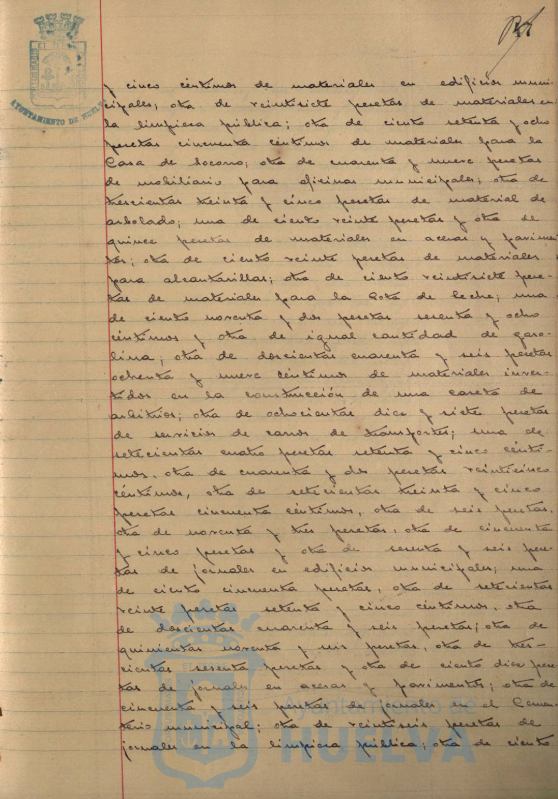 AYUNTAMIENTO DE HUELVA
y cinco céntimos de materiales en edificios muni-
cipales; otra de veintisiete pesetas de materiales en
la limpieza pública; otra de ciento setenta y ocho
pesetas cincuenta céntimos de materiales para la
Casa de Socorro; otra de cuarenta y nueve pesetas
de mobiliario para oficinas municipales; otra de
trescientas treinta y cinco pesetas de material de
arbolado; una de ciento veinte pesetas y otra de
quince pesetas de materiales en aceras y pavimen
tos; otra de ciento veinte pesetas de materiales
para alcantarillas; otra de ciento veintisiete pese-
tas de materiales para la Gota de leche; una
de ciento noventa y dos pesetas sesenta y ocho
céntimos y otra de igual cantidad de gaso-
lina; otra de doscientas cuarenta y seis pesetas
ochenta y nueve céntimos de materiales inver-
tidos en la construcción de una caseta de
arbitrios; otra de ochocientas diez y siete pesetas
de servicios de carros de transportes; una de
setecientas cuatro pesetas setenta y cinco cénti-
mos, otra de cuarenta y dos pesetas veinticinco
céntimos, otra de setecientas treinta y cinco
pesetas cincuenta céntimos, otra de seis pesetas,
otra de noventa y tres pesetas, otra de cincuenta
y cinco pesetas y otra de sesenta y seis pese
tas de jornales en edificios municipales; una
de ciento cincuenta pesetas, otra de setecientas
veinte pesetas setenta y cinco céntimos, otra
de doscientas cuarenta y seis pesetas; otra de
quinientas noventa y seis pesetas, otra de tres-
cientas sesenta pesetas y otra de ciento diez pese
tas de jornales en aceras y pavimentos; otra de
cincuenta y seis pesetas de jornales en el Cemen
terio municipal; otra de veintiseis pesetas de
jornales en la limpieza pública; otra de ciento
Ayuntamiento de
HUELVA